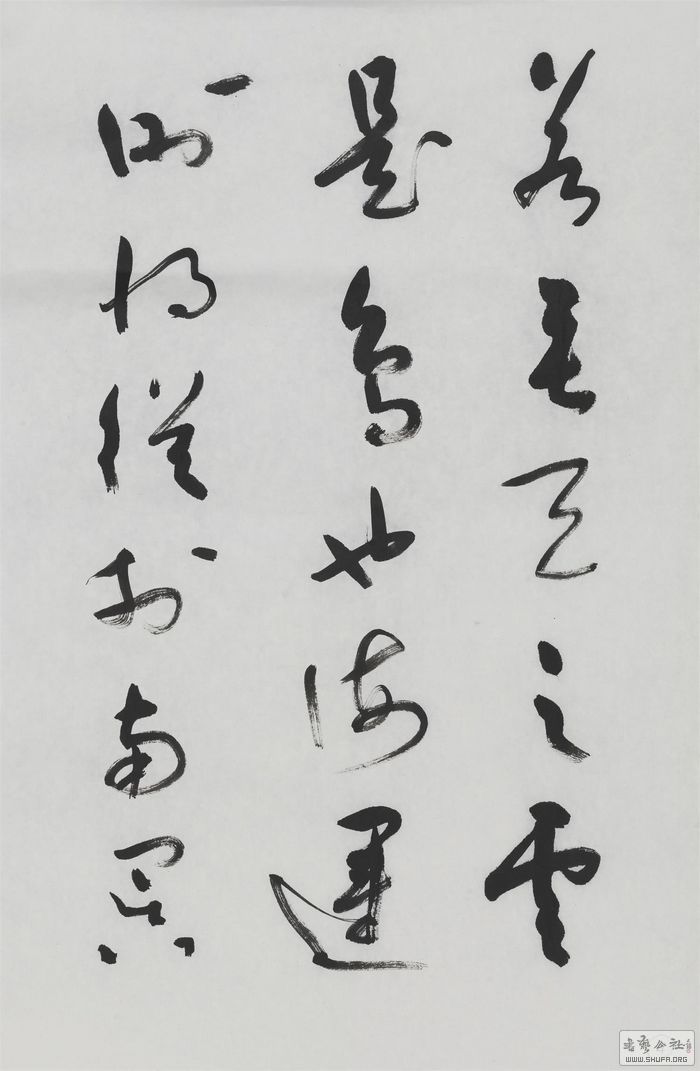 若垂天之雲
是鳥也海運
則將徙於南冥
書藝公社
WWW.SHUFA.ORG